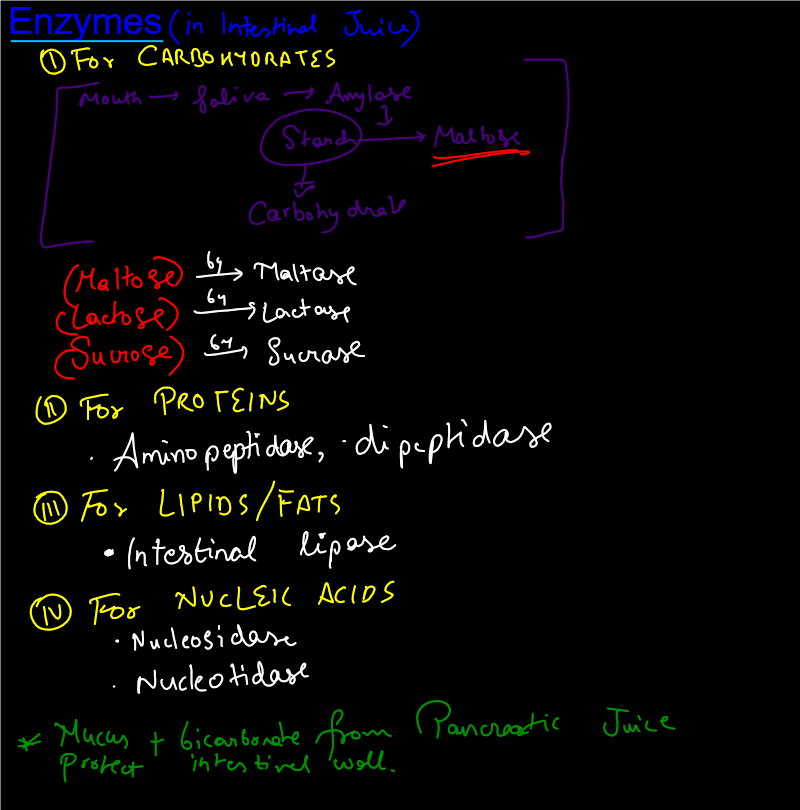 Enzymes (in Intestinal Juice)
① For CARBOHYDRATES
Mouth → Saliva → Amylase
Starch → Maltose
Carbohydrate
(Maltose) by → Maltase
(Lactose) by → Lactase
(Sucrose) by → Sucrase
II For PROTEINS
· Aminopeptidase, · dipeptidase
III For LIPIDS/FATS
• Intestinal lipase
IV For NUCLEIC ACIDS
· Nucleosidase
· Nucleotidase
* Mucus + bicarbonate from Pancreatic Juice
protect intestinal wall.